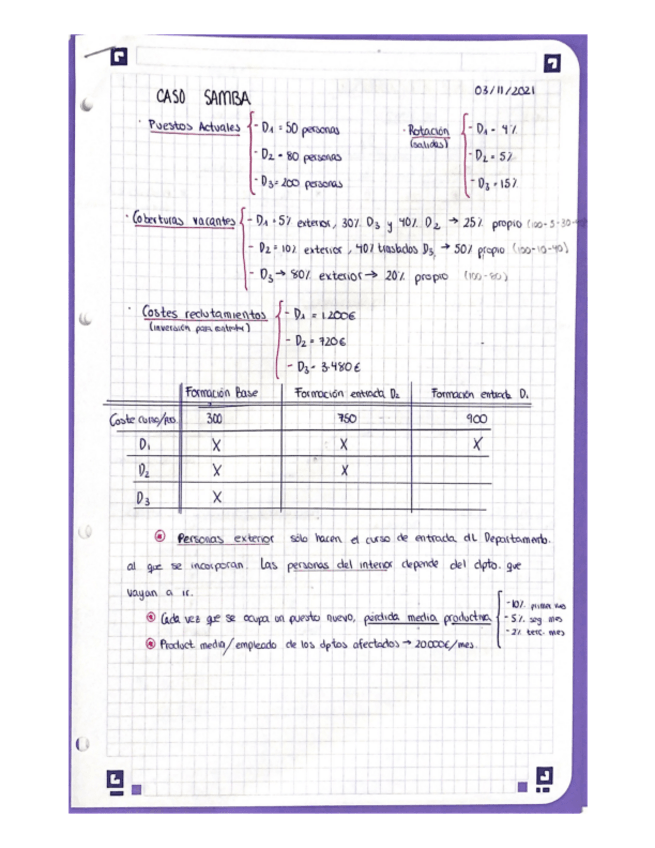 CASO SAMBA
03/11/2021
· Puestos Actuales - D1 = 50 personas
- D2 = 80 personas
- D3 = 200 personas
· Rotación (salidas) - D1 = 4%
- D2 = 5%
- D3 = 15%
· Coberturas vacantes - D1 = 5% exterior, 30% D3 y 40% D2 → 25% propio (100-5-30-40
- D2 = 10% exterior, 40% traslados D3 → 50% propio (100-10-40)
- D3 → 80% exterior → 20% propio (100-80)
· Costes reclutamientos - D1 = 1.200€
(inversión para entrar) - D2 = 720€
- D3 = 3.480€
Formación Base Formación entrada D2 Formación entrada D1
Coste curso/ 300 750 900
D1 X X X
D2 X X
D3 X
Personas exterior sólo hacen el curso de entrada dL Departamento.
al que se incorporan. Las personas del interior depende del dpto. que
vayan a ir.
Cada vez que se ocupa un puesto nuevo, pérdida media productiva - 10% primer mes
- 5% seg. mes
- 2% terc. mes
Product. media/empleado de los dptos afectados → 20000€/mes.